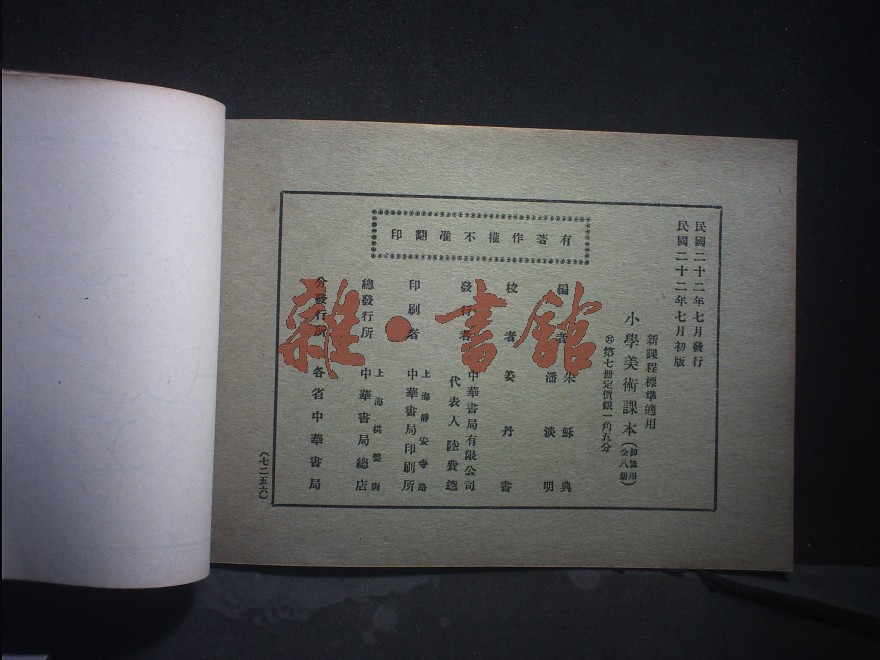 民國二十二年七月發行
民國二十二年七月初版
新課程標準適用
小學美術課本（初級用全八册）
第七册定價銀一角五分
有著作權不准翻印
編者 朱穌典
潘淡明
校者 姜丹書
發行者 中華書局有限公司
代表人 陸費逵
印刷者 上海靜安寺路
中華書局印刷所
總發行所 上海棋盤街
中華書局總店
分發行所 各省中華書局
（七二五六）
雜·書館